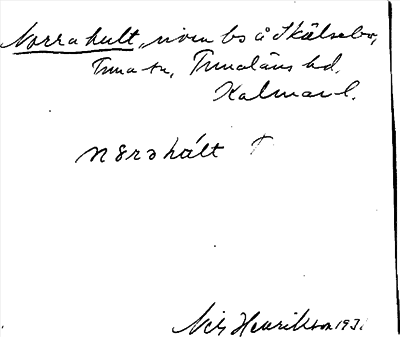 Norra hult, riven bs å Skälsebo,
Tuna sn, Tunaläns hd,
Kalmar l.
nöra hált
Nils Henrikson 193